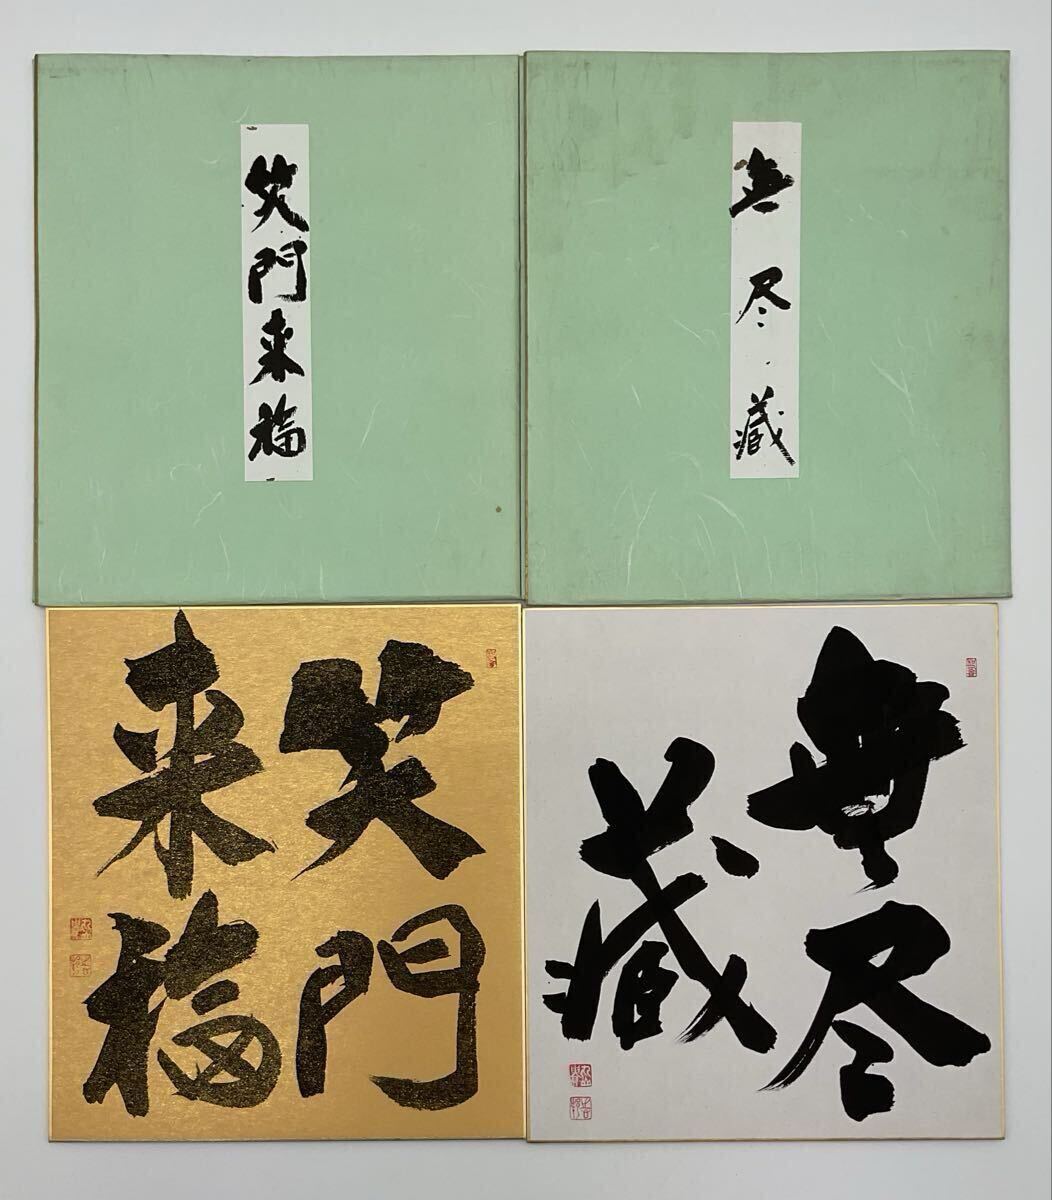 笑門来福
無尽蔵
笑門
来福
無尽
蔵